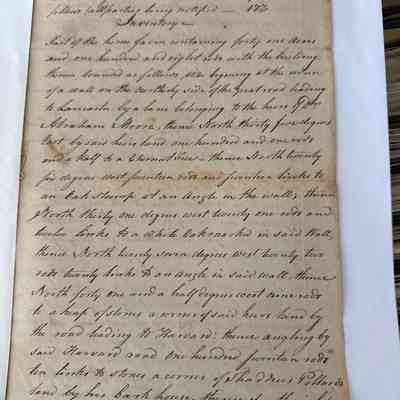 follows (all parties being notified — viz
Inventory
Part of the home farm containing forty one Acres
and one hundred and eight rods with the buildings
thereon bounded as follows, viz. begining at the corner
of a wall on the Northerly side of the Great road leading
to Lancaster by a lane belonging to the heirs of
Abraham Moore, thence North thirty five degrees
East by said heirs land one hundred and one rods
and a half to a Chesnut Tree — thence North twenty
six degrees west fourteen rods and fourteen links to
an Oak Stump at an Angle in the wall; thence
North thirty one degrees west twenty one rods and
twelve links to a white Oak marked in said Wall,
thence North twenty seven degrees west twenty two
rods twenty links to an Angle in said wall, thence
North forty one and a half degrees west nine rods
to a heap of stones a corner of said heirs land by
the road leading to Harvard: thence angling by
said Harvard road one hundred fourteen rods
ten links to stones a corner of Thaddeus Pollards
land by his Bark house,